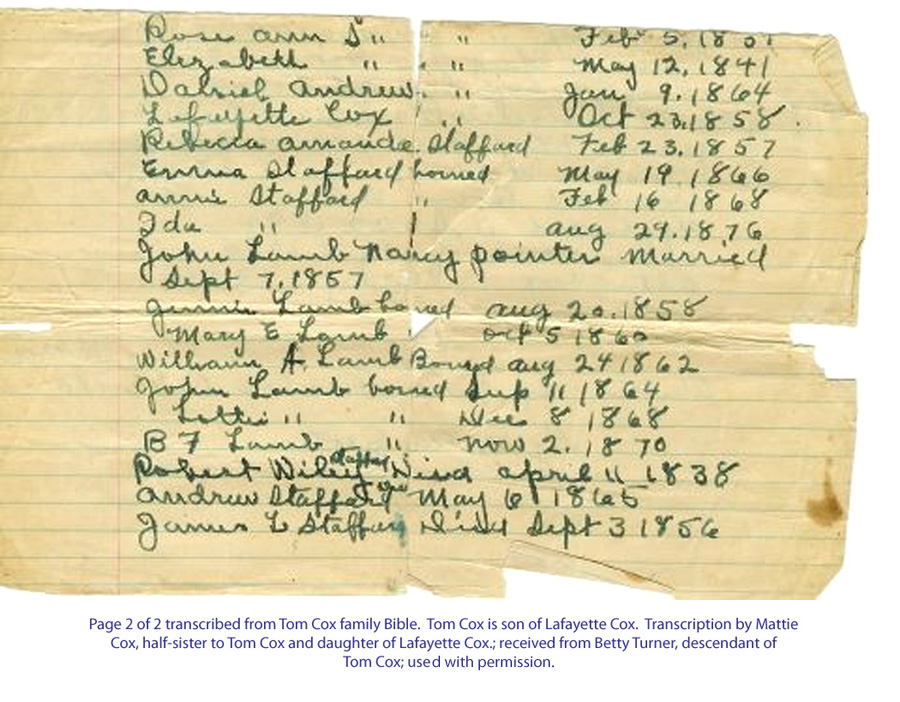 Rose ann S " " Feb 5, 18
Elizabeth " " May 12, 1841
Daniel andrew " " Jan 9. 1864
Lafayette Cox " Oct 23, 1858.
Rebecca amanda Staffard Feb 23, 1857
Emma Staffard borned May 19 1866
annie Staffard " Feb 16 1868
Ida " aug 29. 1876
John Lamb Nancy pointer married
Sept 7, 1857
Jennie Lamb borned aug 20. 1858
Mary E Lamb oct 5 1860
William A. Lamb Borned aug 24 1862
John Lamb borned Sup 11 1864
Lettie " " Dec 8 1868
B F Lamb " now 2. 1870
Robert Wiley Staffard Died april 11 1838
andrew Staffard May 6 1865
James L Staffard Died Sept 3 1856
Page 2 of 2 transcribed from Tom Cox family Bible. Tom Cox is son of Lafayette Cox. Transcription by Mattie
Cox, half-sister to Tom Cox and daughter of Lafayette Cox.; received from Betty Turner, descendant of
Tom Cox; used with permission.